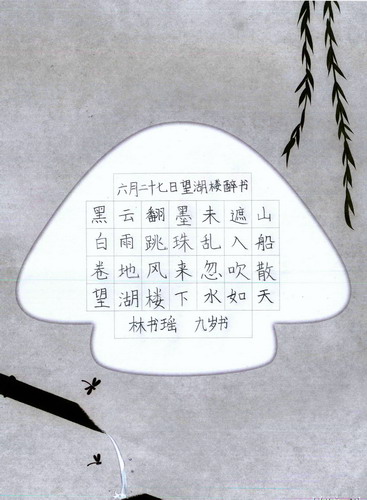 六月二十七日望湖楼醉书
黑云翻墨未遮山
白雨跳珠乱入船
卷地风来忽吹散
望湖楼下水如天
林书瑶 九岁书